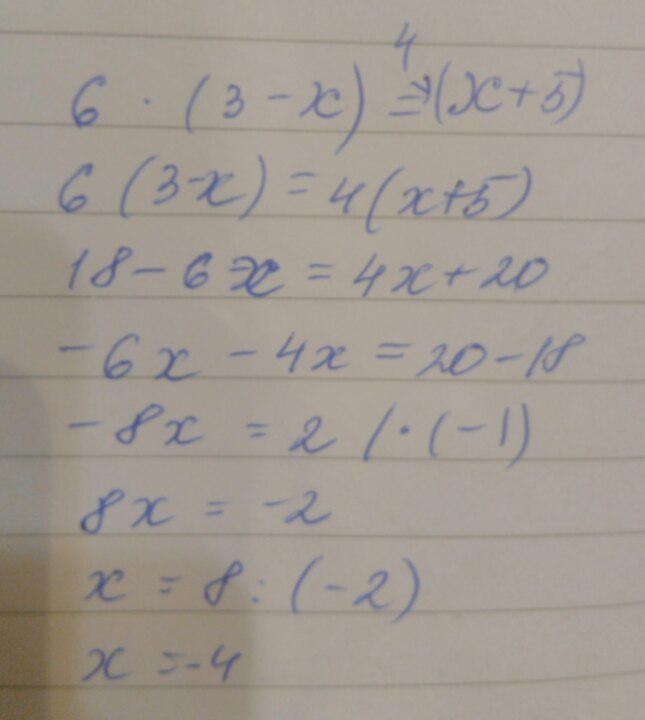 6 · (3 - x) = 4(x+5)
6 (3-x) = 4(x+5)
18 - 6x = 4x + 20
-6x - 4x = 20 - 18
-8x = 2 /·(-1)
8x = -2
x = 8 : (-2)
x = -4